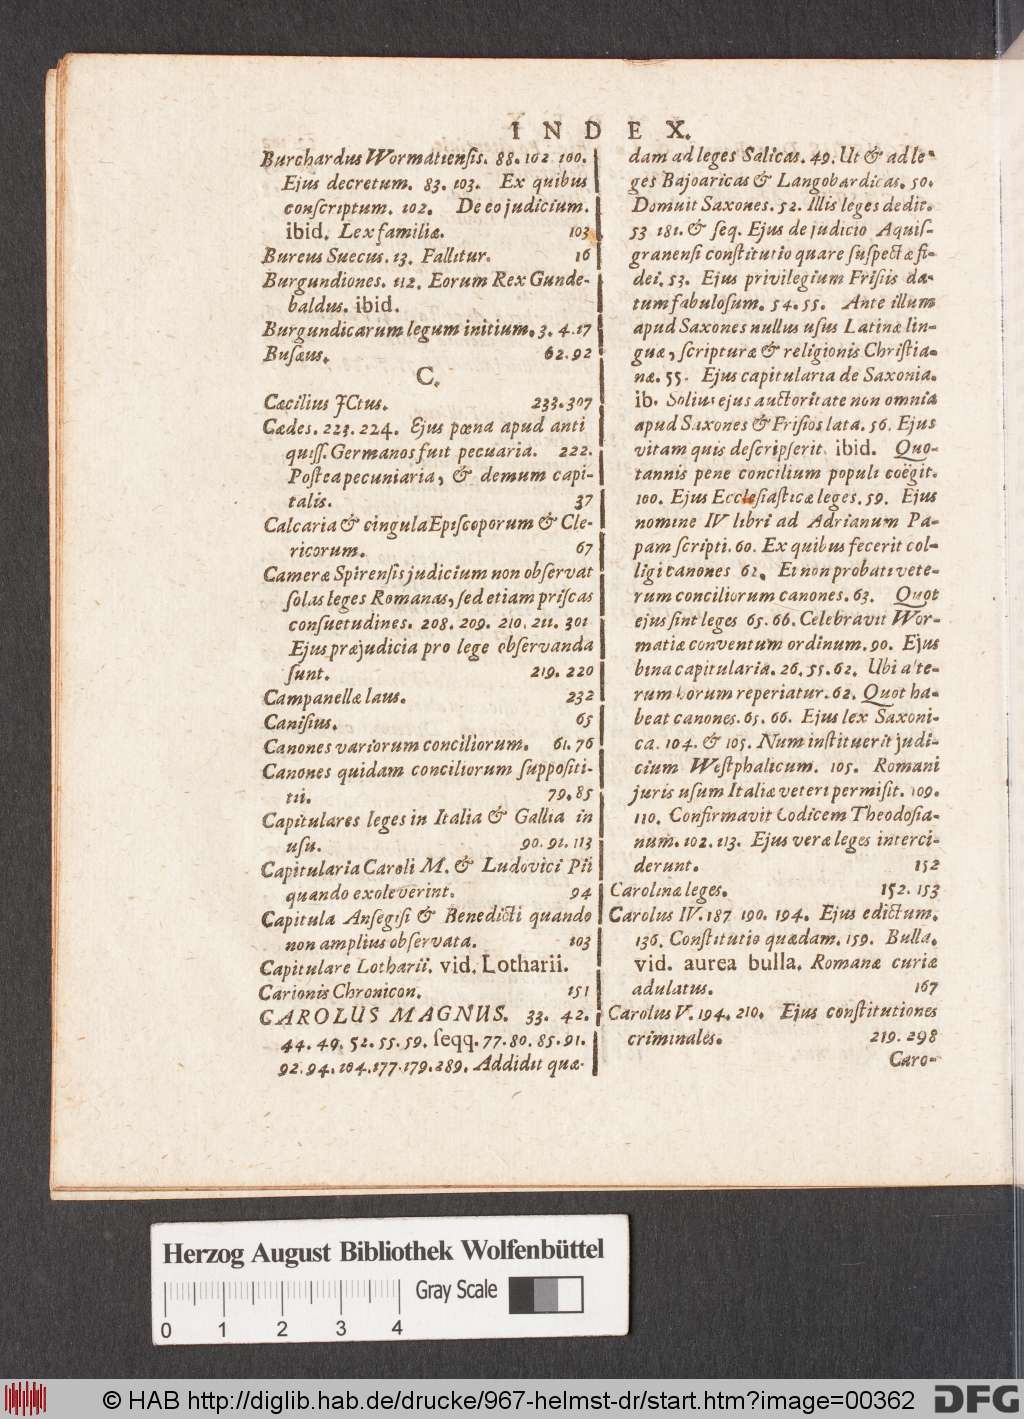 INDEX.
Burchardus Wormatiensis. 88. 102 100.
Ejus decretum. 83. 103. Ex quibus
conscriptum. 102. De eo judicium.
ibid. Lex familiæ. 103
Bureus Suecus. 13. Fallitur. 16
Burgundiones. 112. Eorum Rex Gunde-
baldus. ibid.
Burgundicarum legum initium. 3. 4. 17
Busæus. 62. 92
C.
Cæcilius JCtus. 233. 307
Cædes. 223. 224. Ejus pœna apud anti
quiss. Germanos fuit pecuaria. 222.
Postea pecuniaria, & demum capi-
talis. 37
Calcaria & cingula Episcoporum & Cle-
ricorum. 67
Cameræ Spirensis judicium non observat
solas leges Romanas, sed etiam priscas
consuetudines. 208. 209. 210. 211. 301
Ejus præjudicia pro lege observanda
sunt. 219. 220
Campanellæ laus. 232
Canisius. 65
Canones variorum conciliorum. 61. 76
Canones quidam conciliorum suppositi-
tii. 79. 85
Capitulares leges in Italia & Gallia in
usu. 90. 91. 113
Capitularia Caroli M. & Ludovici Pii
quando exoleverint. 94
Capitula Ansegisi & Benedicti quando
non amplius observata. 103
Capitulare Lotharii. vid. Lotharii.
Carionis Chronicon. 151
CAROLUS MAGNUS. 33. 42.
44. 49. 52. 55. 59. seqq. 77. 80. 85. 91.
92. 94. 104. 177. 179. 289. Addidit quæ-
dam ad leges Salicas. 49. Ut & ad le-
ges Bajoaricas & Langobardicas. 50.
Domuit Saxones. 52. Illis leges dedit.
53 181. & seq. Ejus de judicio Aquis-
granensi constitutio quare suspectæ fi-
dei. 53. Ejus privilegium Frisiis da-
tum fabulosum. 54. 55. Ante illum
apud Saxones nullus usus Latinæ lin-
guæ, scripturæ & religionis Christia-
næ. 55. Ejus capitularia de Saxonia.
ib. Solius ejus auctoritate non omnia
apud Saxones & Frisios lata. 56. Ejus
vitam quis descripserit. ibid. Quo-
tannis pene concilium populi coëgit.
100. Ejus Ecclesiasticæ leges. 59. Ejus
nomine IV libri ad Adrianum Pa-
pam scripti. 60. Ex quibus fecerit col-
ligi canones 62. Et non probati vete-
rum conciliorum canones. 63. Quot
ejus sint leges 65. 66. Celebravit Wor-
matiæ conventum ordinum. 90. Ejus
bina capitularia. 26. 55. 62. Ubi alte-
rum horum reperiatur. 62. Quot ha-
beat canones. 65. 66. Ejus lex Saxoni-
ca. 104. & 105. Num instituerit judi-
cium Westphalicum. 105. Romani
juris usum Italiæ veteri permisit. 109.
110. Confirmavit Codicem Theodosia-
num. 102. 113. Ejus veræ leges interci-
derunt. 152
Carolinæ leges. 152. 153
Carolus IV. 187 190. 194. Ejus edictum.
136. Constitutio quædam. 159. Bulla.
vid. aurea bulla. Romanæ curiæ
adulatus. 167
Carolus V. 194. 210. Ejus constitutiones
criminales. 219. 298
Caro-
Herzog August Bibliothek Wolfenbüttel
Gray Scale
0 1 2 3 4
© HAB http://diglib.hab.de/drucke/967-helmst-dr/start.htm?image=00362
DFG